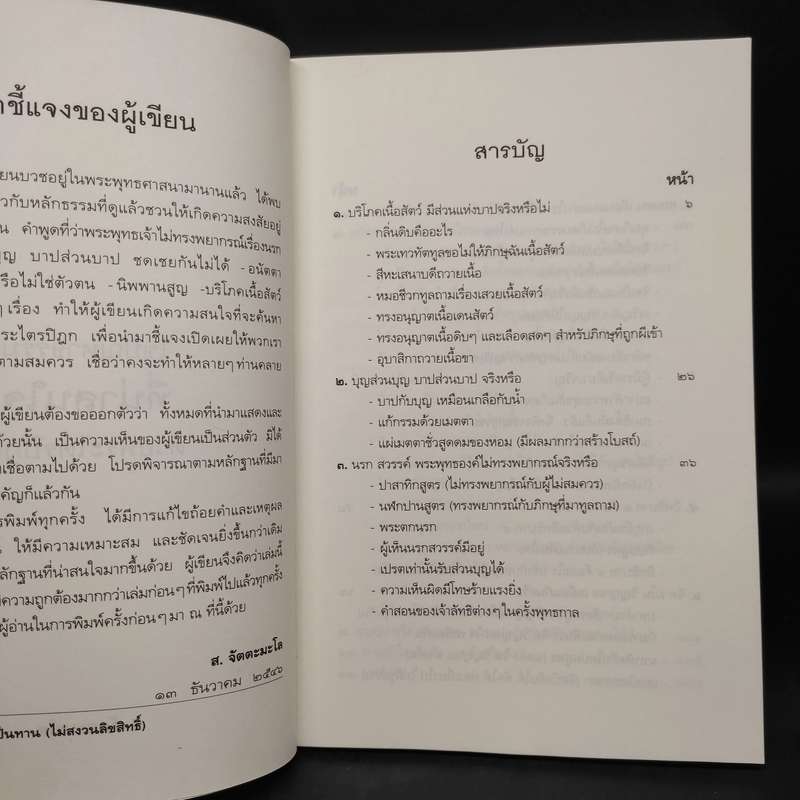 าชี้แจงของผู้เขียน
ยนบวชอยู่ในพระพุทธศาสนามานานแล้ว ได้พบ
วกับหลักธรรมที่ดูแล้วชวนให้เกิดความสงสัยอยู่
น คำพูดที่ว่าพระพุทธเจ้าไม่ทรงพยากรณ์เรื่องนรก
บุญ บาปส่วนบาป ชดเชยกันไม่ได้ -อนัตตา
รือไม่ใช่ตัวตน -นิพพานสูญ -บริโภคเนื้อสัตว์
ๆ เรื่อง ทำให้ผู้เขียนเกิดความสนใจที่จะค้นหา
ระไตรปิฎก เพื่อนำมาชี้แจงเปิดเผยให้พวกเรา
ตามสมควร เชื่อว่าคงจะทำให้หลายๆ ท่านคลาย
ผู้เขียนต้องขอออกตัวว่า ทั้งหมดที่นำมาแสดงและ
ด้วยนั้น เป็นความเห็นของผู้เขียนเป็นส่วนตัว มิได้
งเชื่อตามไปด้วย โปรดพิจารณาตามหลักฐานที่มีมา
คัญก็แล้วกัน
รพิมพ์ทุกครั้ง ได้มีการแก้ไขถ้อยคำและเหตุผล
น ให้มีความเหมาะสม และชัดเจนยิ่งขึ้นกว่าเดิม
ลักฐานที่น่าสนใจมากขึ้นด้วย ผู้เขียนจึงคิดว่าเล่มนี้
ความถูกต้องมากกว่าเล่มก่อนๆ ที่พิมพ์ไปแล้วทุกครั้ง
ผู้อ่านในการพิมพ์ครั้งก่อนๆ มา ณ ที่นี้ด้วย
ส. จัตตะมะโล
๑๓ ธันวาคม ๒๕๔๖
ป็นทาน (ไม่สงวนลิขสิทธิ์)
สารบัญ
หน้า
๑. บริโภคเนื้อสัตว์ มีส่วนแห่งบาปจริงหรือไม่ ๖
- กลิ่นดิบคืออะไร
- พระเทวทัตทูลขอไม่ให้ภิกษุฉันเนื้อสัตว์
- สีหะเสนาบดีถวายเนื้อ
- หมอชีวกทูลถามเรื่องเสวยเนื้อสัตว์
- ทรงอนุญาตเนื้อเดนสัตว์
- ทรงอนุญาตเนื้อดิบๆ และเลือดสดๆ สำหรับภิกษุที่ถูกผีเข้า
- อุบาสิกาถวายเนื้อขา
๒. บุญส่วนบุญ บาปส่วนบาป จริงหรือ ๒๖
- บาปกับบุญ เหมือนเกลือกับน้ำ
- แก้กรรมด้วยเมตตา
- แผ่เมตตาชั่วสูดดมของหอม (มีผลมากกว่าสร้างโบสถ์)
๓. นรก สวรรค์ พระพุทธองค์ไม่ทรงพยากรณ์จริงหรือ ๓๖
- ปาสาทิกสูตร (ไม่ทรงพยากรณ์กับผู้ไม่สมควร)
- นฬกปานสูตร (ทรงพยากรณ์กับภิกษุที่มาทูลถาม)
- พระตกนรก
- ผู้เห็นนรกสวรรค์มีอยู่
- เปรตเท่านั้นรับส่วนบุญได้
- ความเห็นผิดมีโทษร้ายแรงยิ่ง
- คำสอนของเจ้าลัทธิต่างๆ ในครั้งพุทธกาล